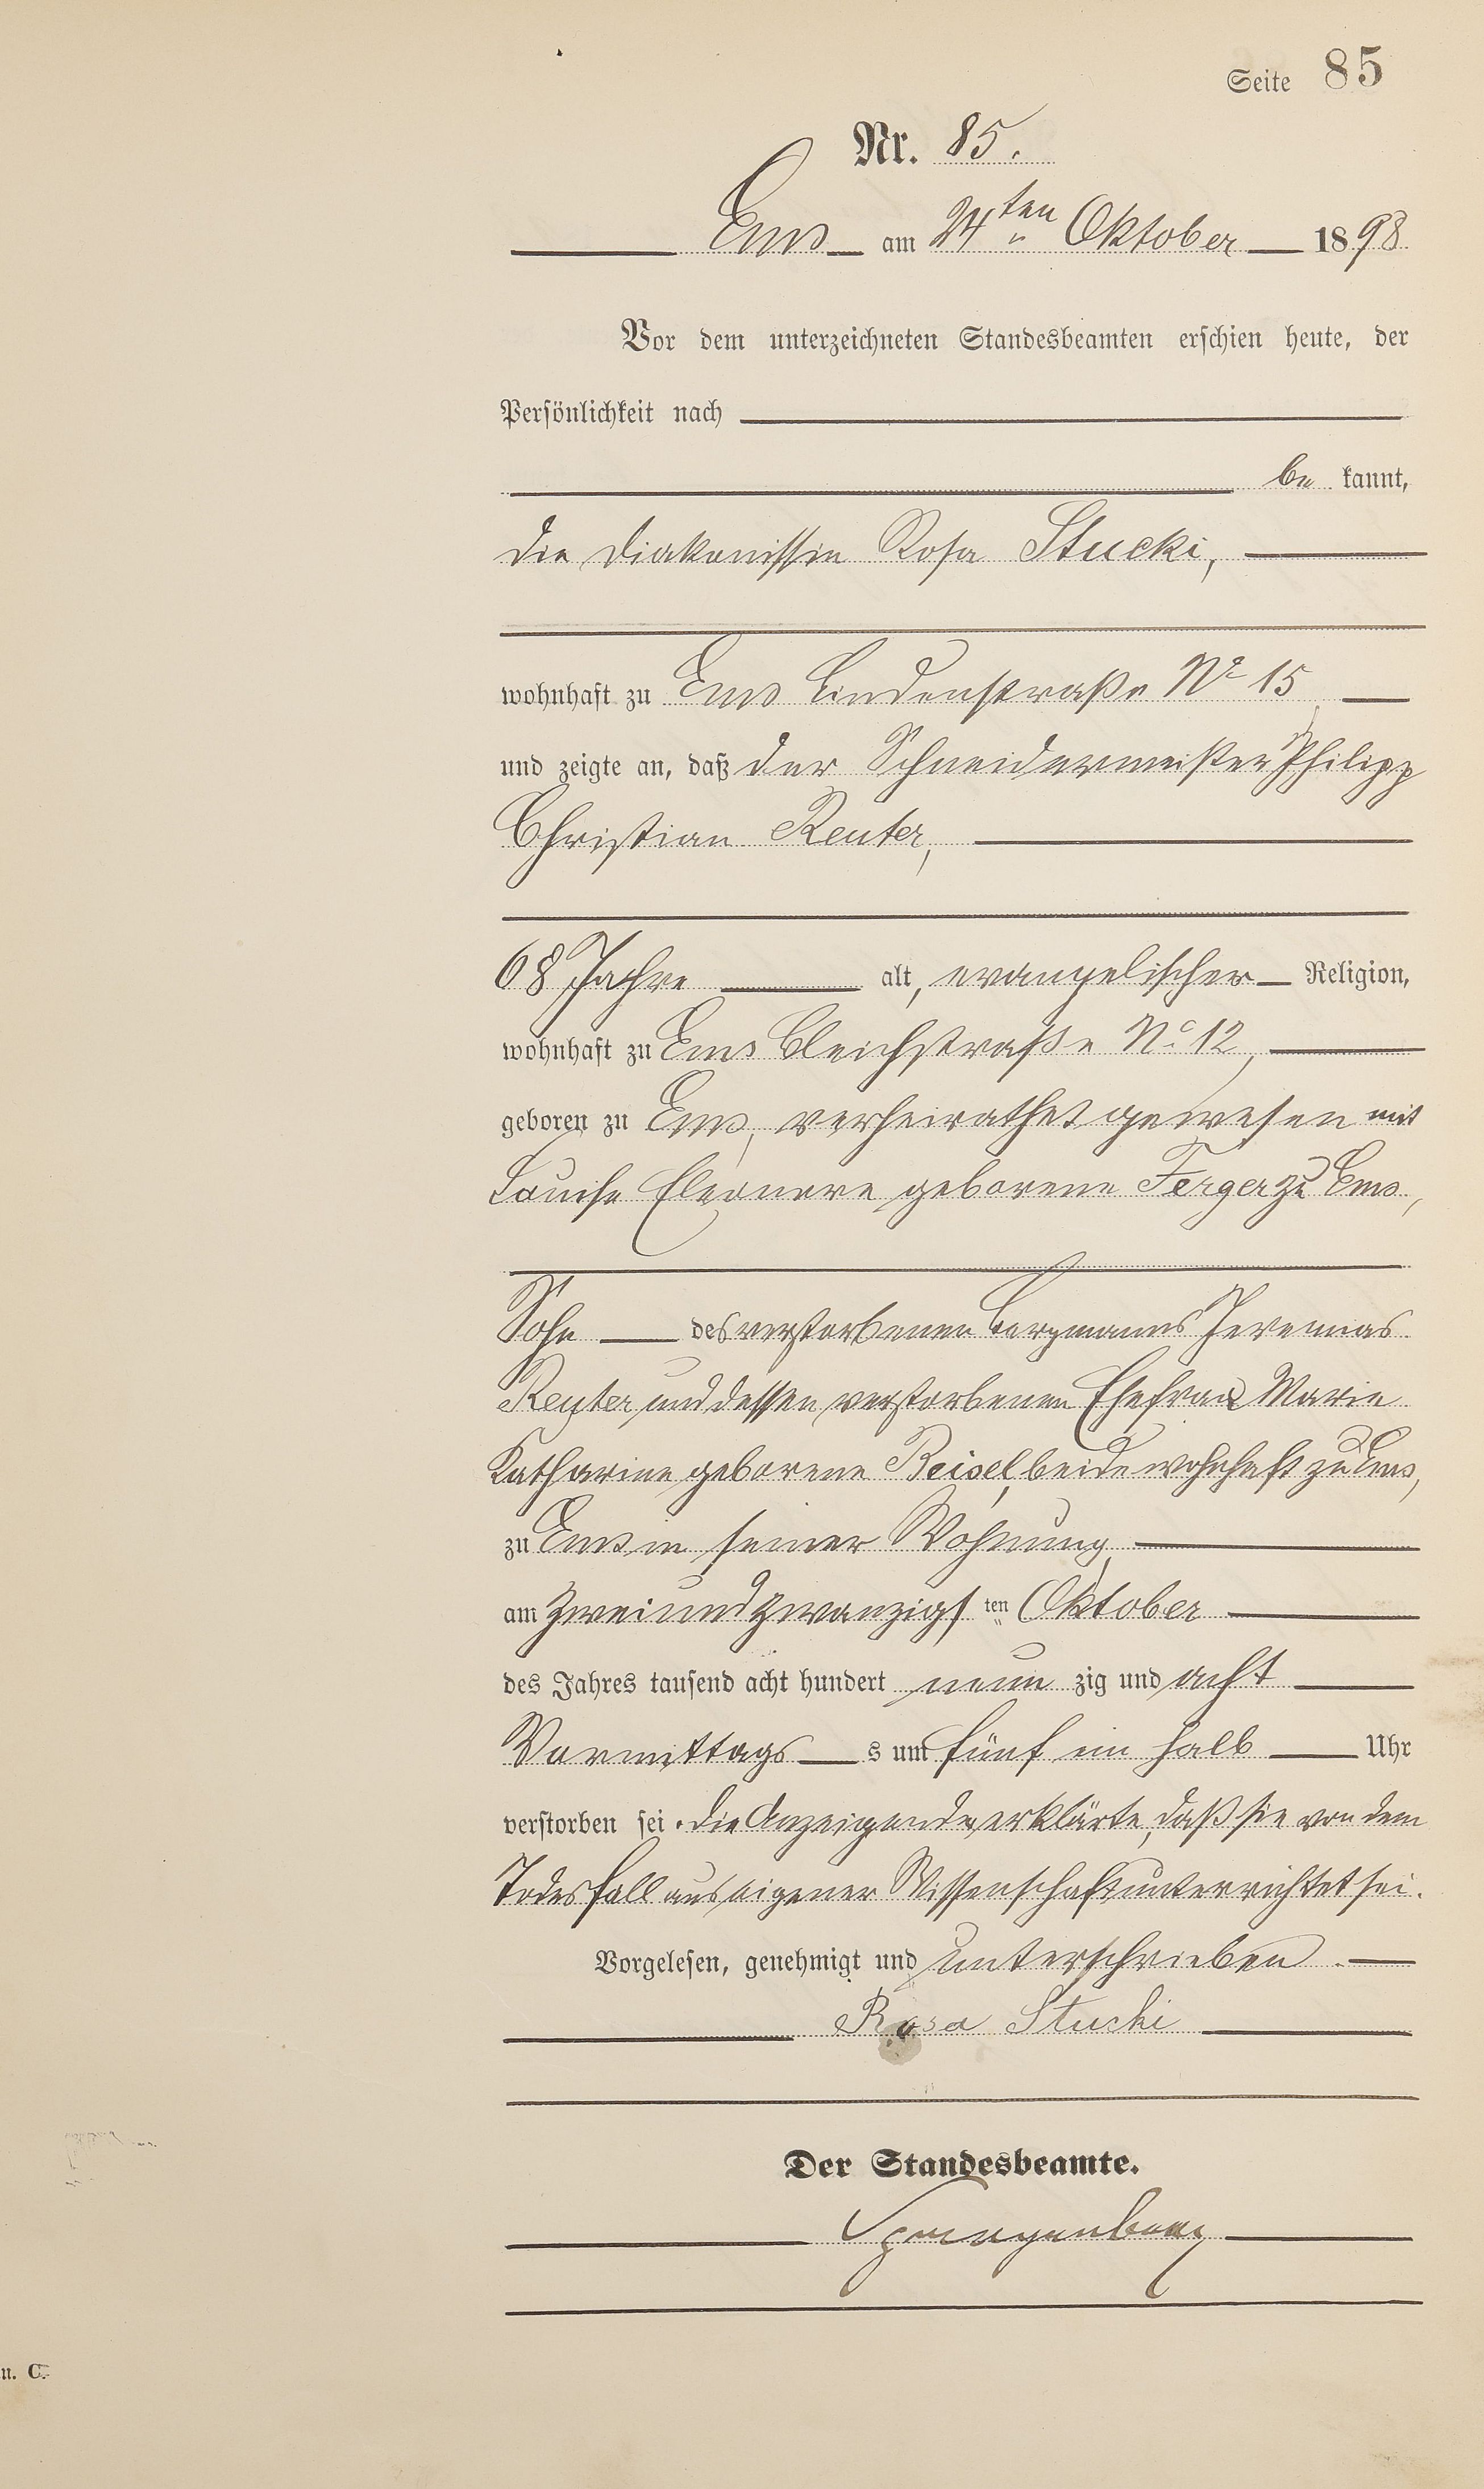 Seite 85
Nr. 85.
Ems am 24ten Oktober 1898
Vor dem unterzeichneten Standesbeamten erschien heute, der
Persönlichkeit nach
be kannt,
die Diakonissin Rosa Stucki,
wohnhaft zu Ems Lindenstraße No 15,
und zeigte an, daß der Schneidermeister Philipp
Christian Reuter,
68 Jahre alt, evangelischer Religion,
wohnhaft zu Ems Bleichstraße No 12,
geboren zu Ems, verheirathet gewesen mit
Louise Eleonore geborene Ferger zu Ems,
Sohn des verstorbenen Bergmanns Jeremias
Reuter und dessen verstorbenen Ehefrau Marie
Katharine geborene Beisel, beide wohnhaft zu Ems,
zu Ems in seiner Wohnung,
am zweiundzwanzigs ten Oktober
des Jahres tausend acht hundert neun zig und acht
Vormittags s um fünf ein halb Uhr
verstorben sei. Die Anzeigende erklärte, daß sie von dem
Todesfall aus eigener Wissenschaft unterrichtet sei.
Vorgelesen, genehmigt und unterschrieben
Rosa Stucki
Der Standesbeamte.
Spangenberg
n. C.